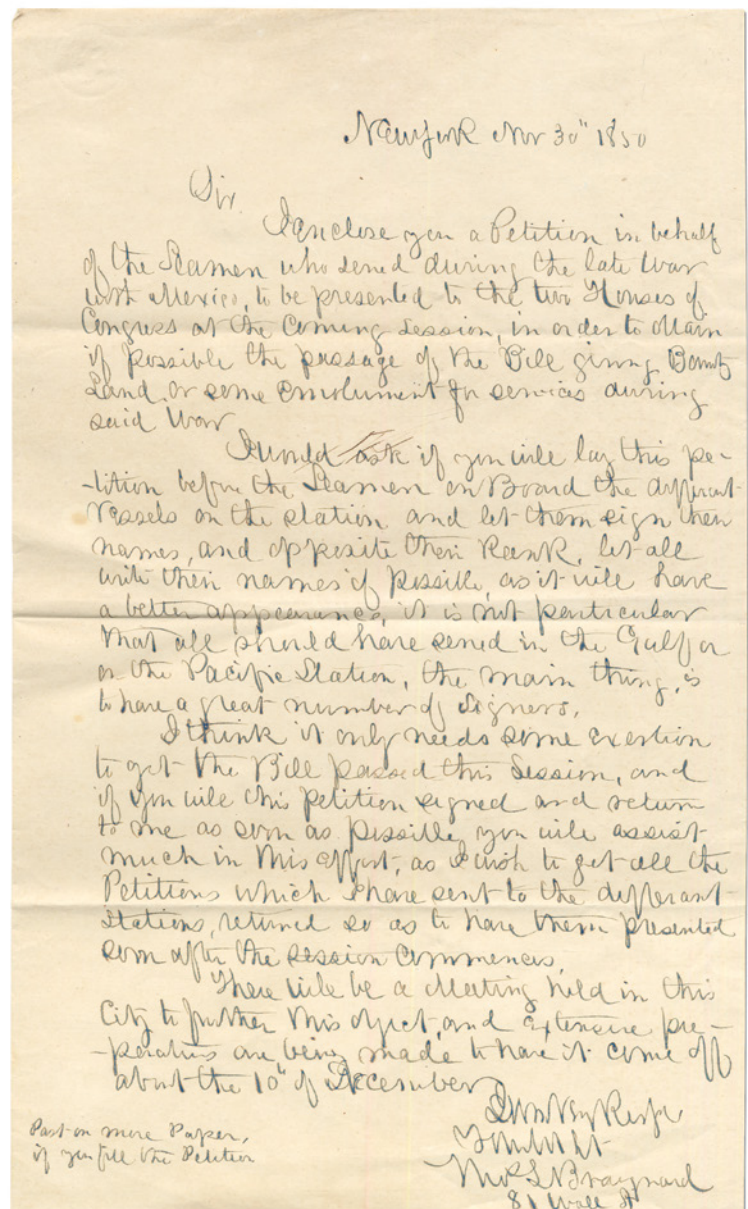 New York Nov 30" 1850
Sir
I enclose you a Petition in behalf
of the Seamen who served during the late War
with Mexico, to be presented to the two Houses of
Congress at the Coming Session, in order to obtain
if possible the passage of the Bill giving Bounty
Land, or some emolument for services during
said War
I would ask if you will lay this pe-
-tition before the Seamen on Board the different
Vessels on the station and let them sign their
names, and opposite their Rank, let all
write their names if possible, as it will have
a better appearance, it is not particular
that all should have served in the Gulf or
on the Pacific Station, the main thing, is
to have a great number of Signers,
I think it only needs some exertion
to get the Bill passed this Session, and
if you will this petition signed and return
to me as soon as possible, you will assist
much in this effort, as I wish to get all the
Petitions which I have sent to the different
Stations, returned so as to have them presented
soon after the session commences
There will be a Meeting held in this
City to further this object, and extensive pre-
-parations are being made to have it come off
about the 10" of December
I am Very Resp
Your Obt St
Braynard
81 Wall St
Past on more Paper,
if you fill the Petition